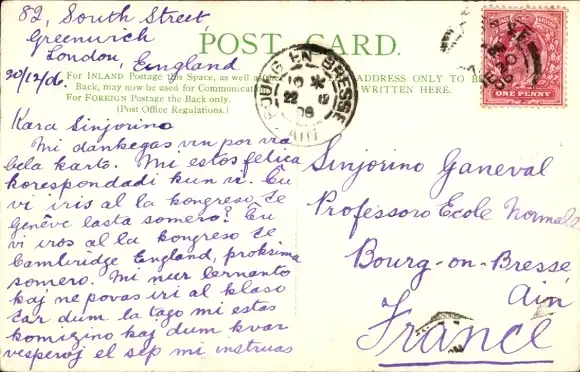 82, South Street
Greenwich
London, England
20/12/06.
POST CARD.
For INLAND Postage this Space, as well as the
Back, may now be used for Communication.
For FOREIGN Postage the Back only.
(Post Office Regulations.)
ADDRESS ONLY TO BE
WRITTEN HERE.
BOURG EN BRESSE
22 12
06
AIN
ONE PENNY
Kara Sinjorino
Mi dankegas vin por via
bela karto. Mi estos felica
korespondadi kun vi. Ĉu
vi iris al la kongreso ĉe
Genêve lasta somero? Ĉu
vi iros al la kongreso ĉe
Cambridge England, proksima
somero. Mi nur lernanto
kaj ne povas iri al klaso
ĉar dum la tago mi estas
komizino kaj dum kvar
vesperoj el sep mi instruas
Sinjorino Ganeval
Professoro Ecole Normale
Bourg-on-Bresse
Ain
France